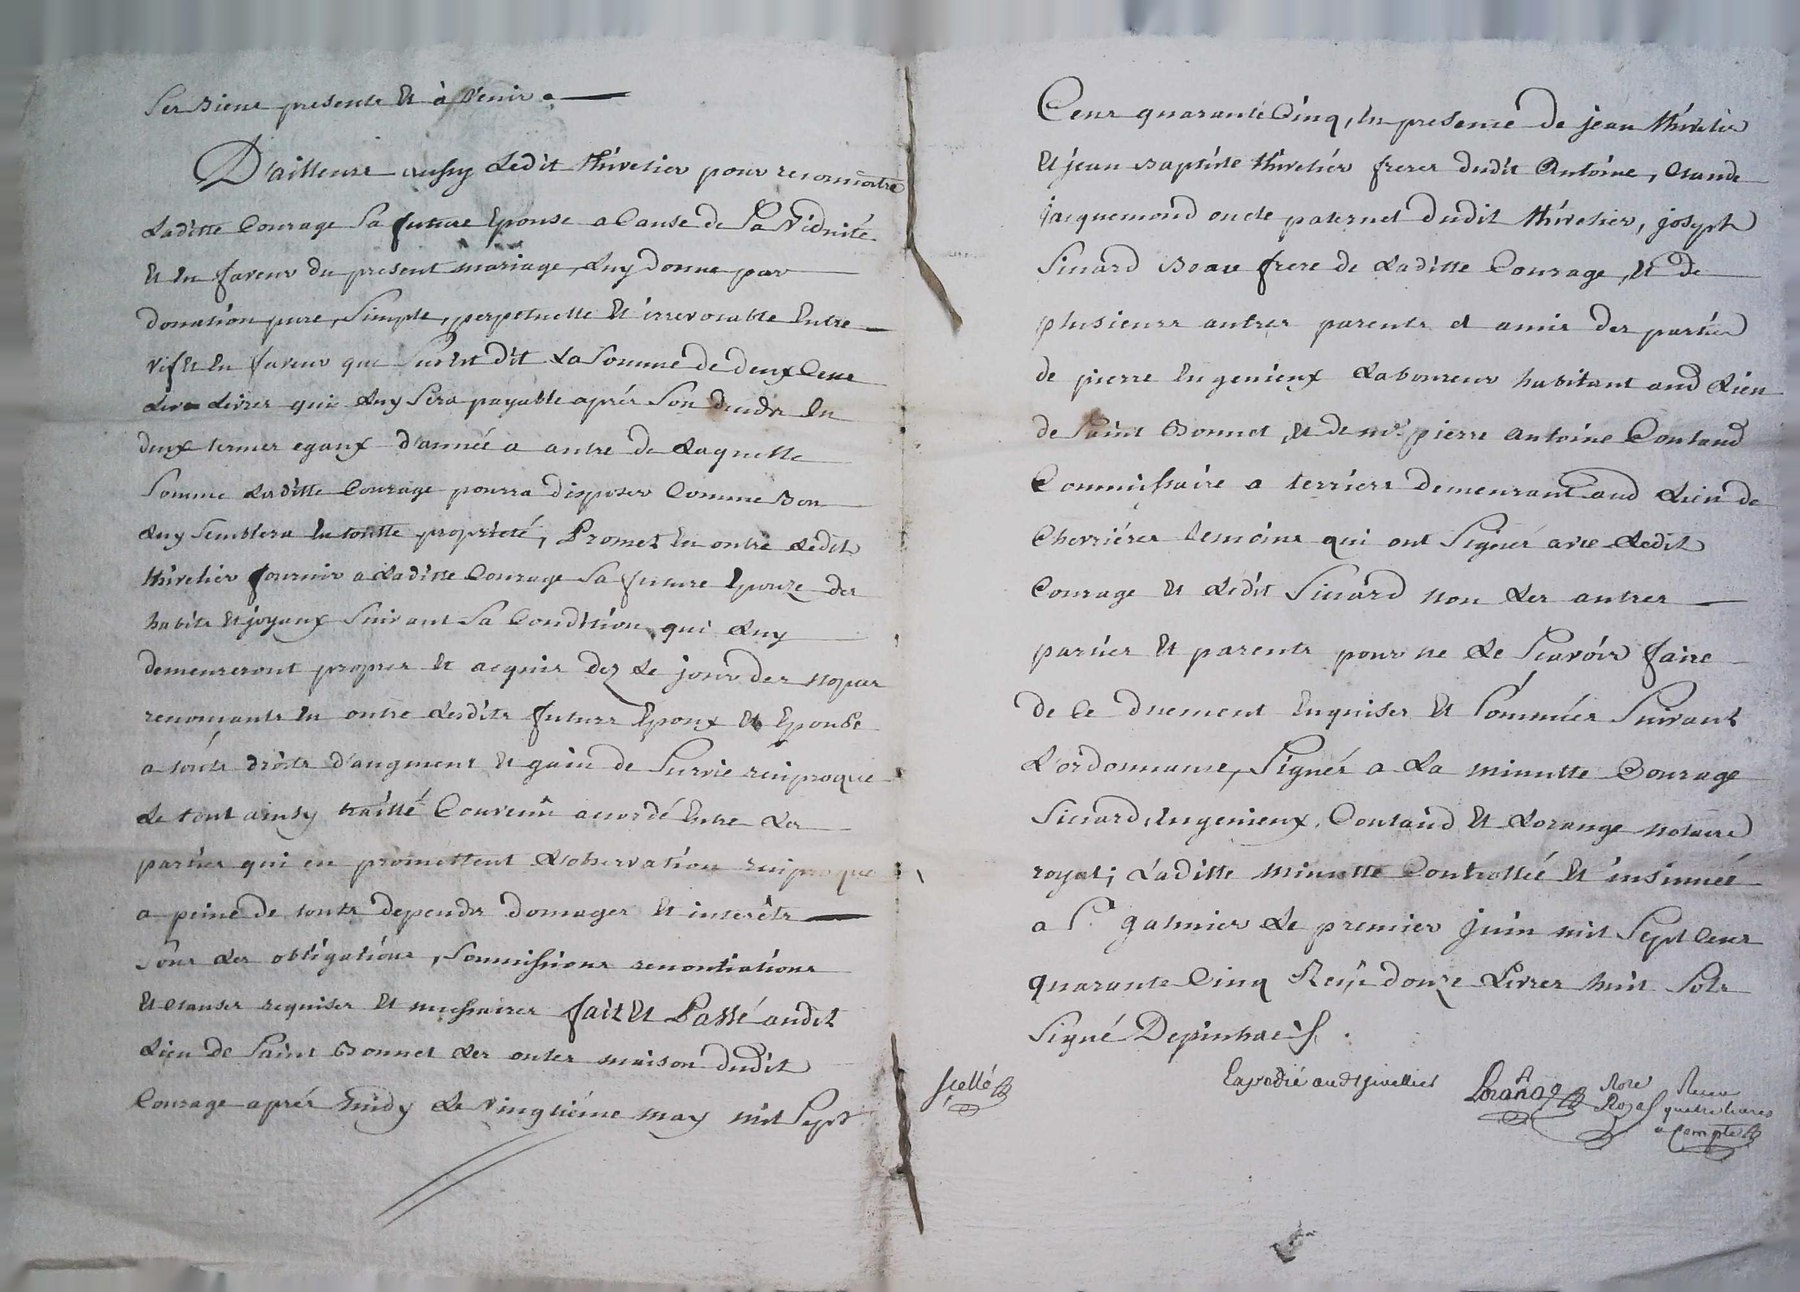 ses Biens presents Et à Venir. —
D'ailleurs aussy Ledit thivelier pour reconnoitre
Laditte Courage Sa future Epouse a Cause de Sa Viduité
Et En faveur du present mariage, Luy donne par
donation pure, Simple, perpetuelle Et irrevocable Entre
vifs Et En faveur que Sus Est dit La Somme de deux Cens
Livres qui Luy Sera payable aprés Son deceds En
deux termes egaux d'année a autre de Laquelle
Somme Laditte Courage pourra disposer Comme Bon
Luy Semblera En toutte proprieté, Promet En outre Ledit
thivelier fournir a Laditte Courage Sa future Epouze des
habits Et joyaux Suivant Sa Condition qui Luy
demeureront propres Et acquis dez Le jour des nopces
renonçants En outre Lesdits futurs Epoux Et Epouse
a touts droits d'augment Et gain de Survie reciproque
Le tout ainsy traitté Convenû accordé Entre Les
parties qui en promettent L'observation reciproque
a peine de touts depends domages Et interêts —
Sous Les obligations, Soumissions renontiations
Et clauses requises Et necessaires fait Et Passé audit
Lieu de Saint Bonnet Les oules maison dudit
Courage aprés midy Le vingtiéme may mil Sept
Cens quarante Cinq, En presence de jean thivelier
Et jean Baptiste thivelier freres dudit Antoine, Claude
jacquemond oncle paternel dudit thivelier, joseph
Sicard Beau frere de Laditte Courage, Et de
plusieurs autres parents et amis des parties
de pierre Engenieux Laboureur habitant aud Lieu
de Saint Bonnet, Et de me. pierre antoine Coutaud
Commissaire a terriers demeurant aud Lieu de
Chevriéres temoins qui ont Signés avec Ledit
Courage Et Ledit Sicard non Les autres —
parties Et parents pour ne Le Scavoir faire
de Ce duement Enquises Et Sommées Suivant
L'ordonnance, Signés a La minutte Courage
Sicard, Engenieux, Coutaud Et Lorange notaire
royal; Laditte minutte Controllée Et insinuée
a St. galmier Le premier juin mil Sept Cens
quarante Cinq Reçu douze Livres huit Sols
Signé Depinhac.
Scellé
Expedié aud thivellier
Lorange Nore Royal
Receu quatre livres a Compte